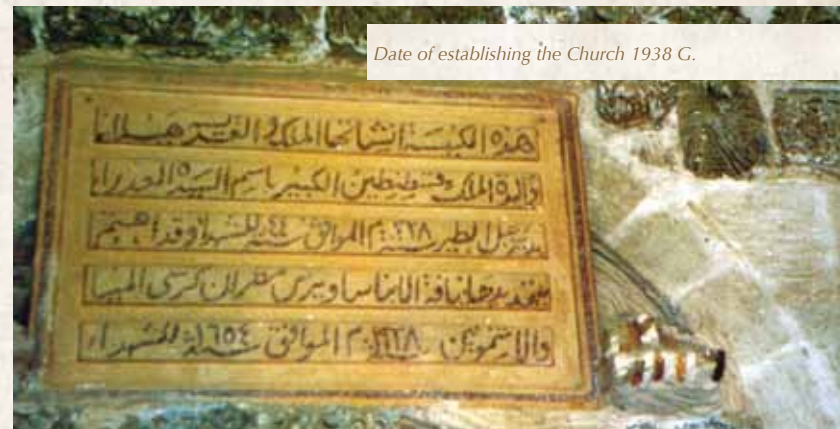 Date of establishing the Church 1938 G.
هذه الكنيسة انشأتها الملكة القديسة هيلانه
والدة الملك قسطنطين الكبير باسم السيدة العذراء
بجبل الطير سنة ٣٢٨م الموافق سنة ٤٤ للشهدا وقد اهتم
بتجديدها نيافة الانبا ساويرس مطران كرسى المنيا
والاشمونين سنة م الموافق سنة ١٦٥٤ للشهداء